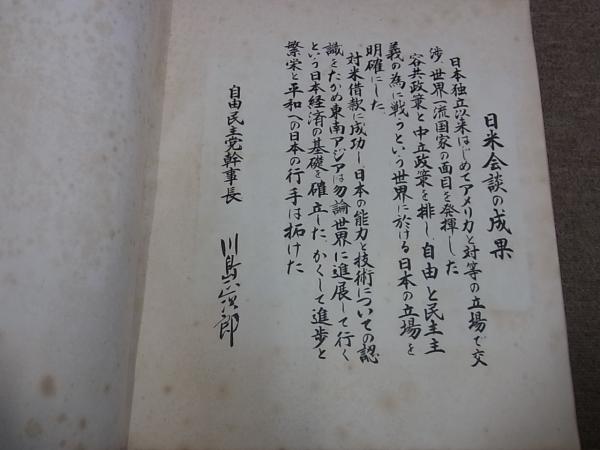 日米会談の成果
日本独立以来はじめてアメリカと対等の立場で交
渉、世界一流国家の面目を発揮した
容共政策と中立政策を排し、自由と民主主
義の為に戦うという世界に於ける日本の立場を
明確にした
対米借款に成功し、日本の能力と技術についての認
識をたかめ東南アジアは勿論世界に進展して行く
という日本経済の基礎を確立した、かくして進歩と
繁栄と平和への日本の行手は拓けた
自由民主党幹事長
川島正次郎